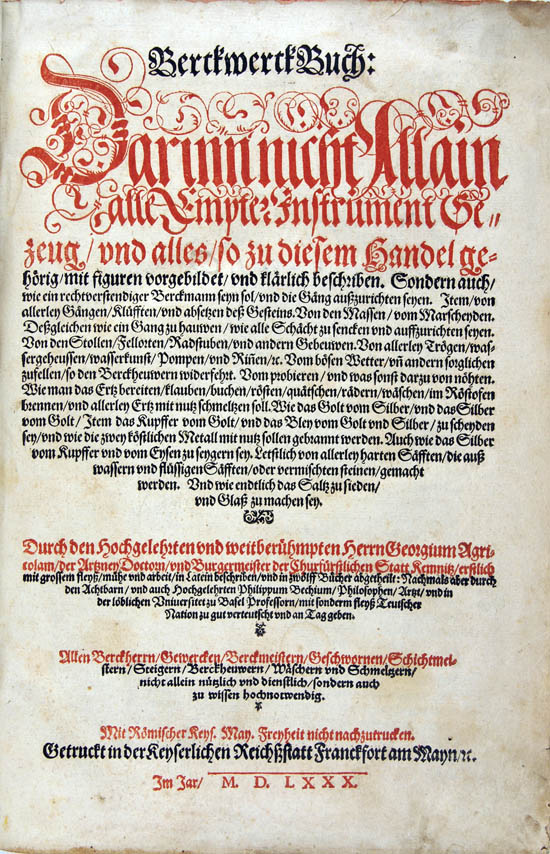 BerckwerckBuch:
Darinn nicht Allain
alle Empter Instrument Ge-
zeug/ vnd alles/ so zu diesem Handel ge-
hörig/ mit figuren vorgebildet/ vnd klärlich beschriben. Sondern auch/
wie ein rechtverstendiger Berckmann seyn sol/ vnd die Gäng außzurichten seyen. Item/ von
allerley Gängen/ Klüfften/ vnd absetzen deß Gesteins. Von den Massen/ vom Marscheyden.
Deßgleichen wie ein Gang zu hauwen/ wie alle Schächt zu sencken vnd auffzurichten seyen.
Von den Stollen/ Fellorten/ Radstuben/ vnd andern Gebeuwen. Von allerley Trögen/ was-
sergeheussen/ wasserkunst/ Pompen/ vnd Riñen/ ꝛc. Vom bösen Wetter/ vñ andern sorglichen
zufellen/ so den Berckheuwern widerfehrt. Vom probieren/ vnd was sonst darzu von nöhten.
Wie man das Ertz bereiten/ klauben/ buchen/ rösten/ quätschen/ rädern/ wäschen/ im Röstofen
brennen/ vnd allerley Ertz mit nutz schmeltzen soll. Wie das Golt vom Silber/ vnd das Silber
vom Golt/ Item das Kupffer vom Golt/ vnd das Bley vom Golt vnd Silber/ zu scheyden
sey/ vnd wie die zwey köstlichen Metall mit nutz sollen gebrannt werden. Auch wie das Silber
vom Kupffer vnd vom Eysen zu seygern sey. Letstlich von allerley harten Säfften/ die auß
wassern vnd flüssigen Säfften/ oder vermischten steinen/ gemacht
werden. Vnd wie endtlich das Saltz zu sieden/
vnd Glaß zu machen sey.
Durch den Hochgelehrten vnd weitberühmpten Herrn Georgium Agri-
colam/ der Artzney Doctorn/ vnd Burgermeister der Churfürstlichen Statt Kemnitz/ erstlich
mit grossem fleyß/ mühe vnd arbeit/ in Latein beschriben/ vnd in zwölff Bücher abgetheilt: Nachmals aber durch
den Achtbarn/ vnd auch Hochgelehrten Philippum Bechium/ Philosophen/ Artzt/ vnd in
der löblichen Vniuersitet zu Basel Professorn/ mit sonderm fleyß Teutscher
Nation zu gut verteutscht vnd an Tag geben.
Allen Berckherrn/ Gewercken/ Berckmeistern/ Geschwornen/ Schichtmei-
stern/ Steigern/ Berckheuwern/ Wäschern vnd Schmeltzern/
nicht allein nützlich vnd dienstlich/ sondern auch
zu wissen hochnotwendig.
Mit Römischer Keys. May. Freyheit nicht nachzutrucken.
Getruckt in der Keyserlichen Reichßstatt Franckfort am Mayn/ ꝛc.
Im Jar/ M. D. LXXX.